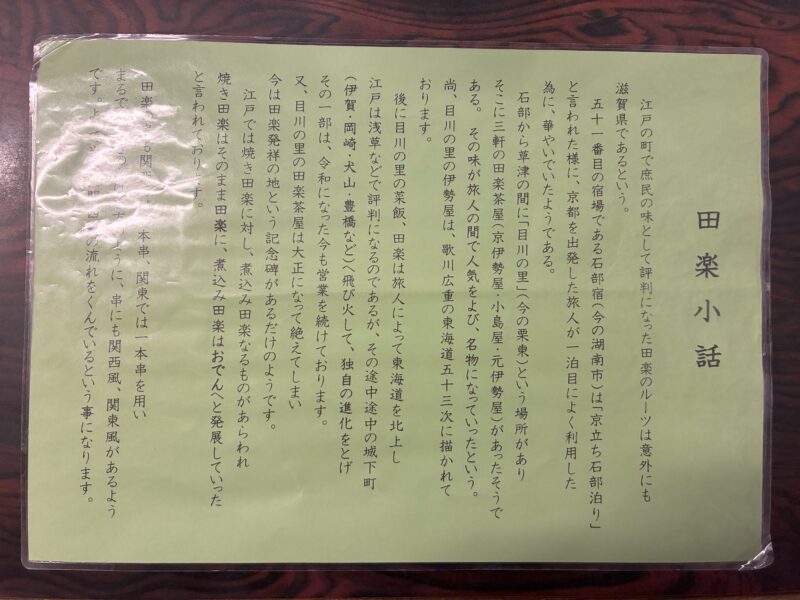 田楽小話
江戸の町で庶民の味として評判になった田楽のルーツは意外にも
滋賀県であるという。
五十一番目の宿場である石部宿(今の湖南市)は「京立ち石部泊り」
と言われた様に、京都を出発した旅人が一泊目によく利用した
為に、華やいでいたようである。
石部から草津の間に「目川の里」(今の栗東)という場所があり
そこに三軒の田楽茶屋(京伊勢屋・小島屋・元伊勢屋)があったそうで
ある。その味が旅人の間で人気をよび、名物になっていったという。
尚、目川の里の伊勢屋は、歌川広重の東海道五十三次に描かれて
おります。
後に目川の里の菜飯、田楽は旅人によって東海道を北上し
江戸は浅草などで評判になるのであるが、その途中途中の城下町
(伊賀・岡崎・犬山・豊橋など)へ飛び火して、独自の進化をとげ
その一部は、令和になった今も営業を続けております。
又、目川の里の田楽茶屋は大正になって絶えてしまい
今は田楽発祥の地という記念碑があるだけのようです。
江戸では焼き田楽に対し、煮込み田楽なるものがあらわれ
焼き田楽はそのまま田楽に、煮込み田楽はおでんへと発展していった
と言われております。
田楽 も関 本串、関東では一本串を用い
まるで ように、串にも関西風、関東風があるよう
です。 の流れをくんでいるという事になります。